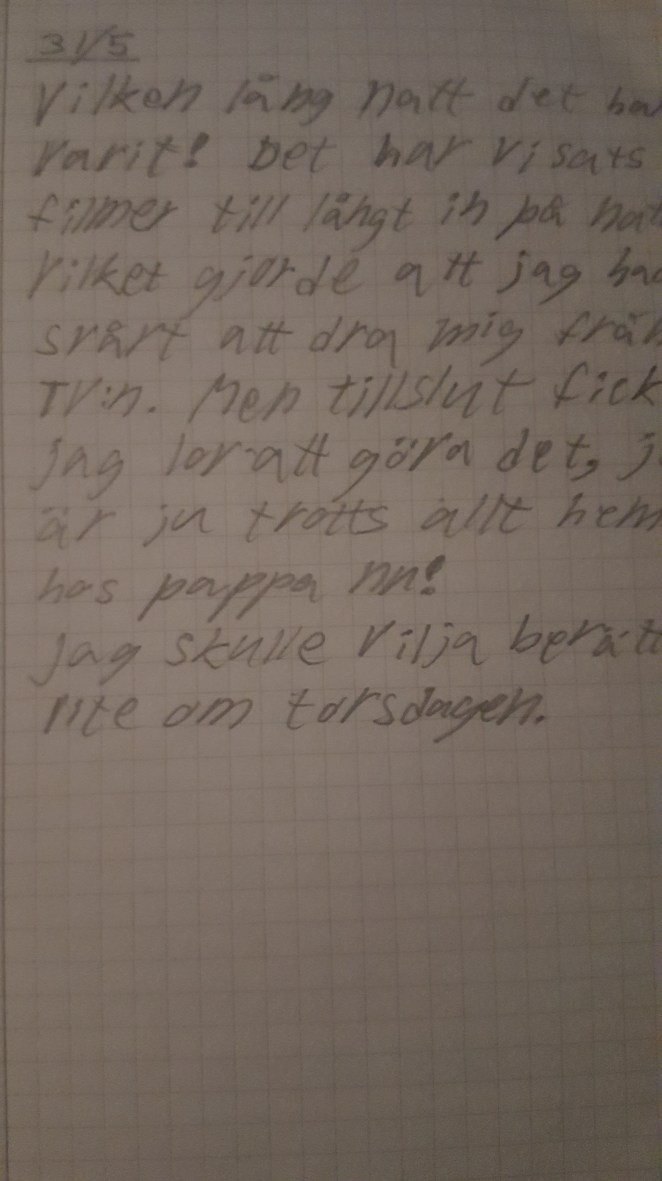 31/5
Vilken lång natt det ha
varit! Det har visats
filmer till långt in på nat
vilket gjorde att jag ha
svårt att dra mig från
TV:n. Men tillslut fick
jag lov att göra det, j
är ju trotts allt hem
hos pappa nu!
Jag skulle vilja berätt
lite om torsdagen.